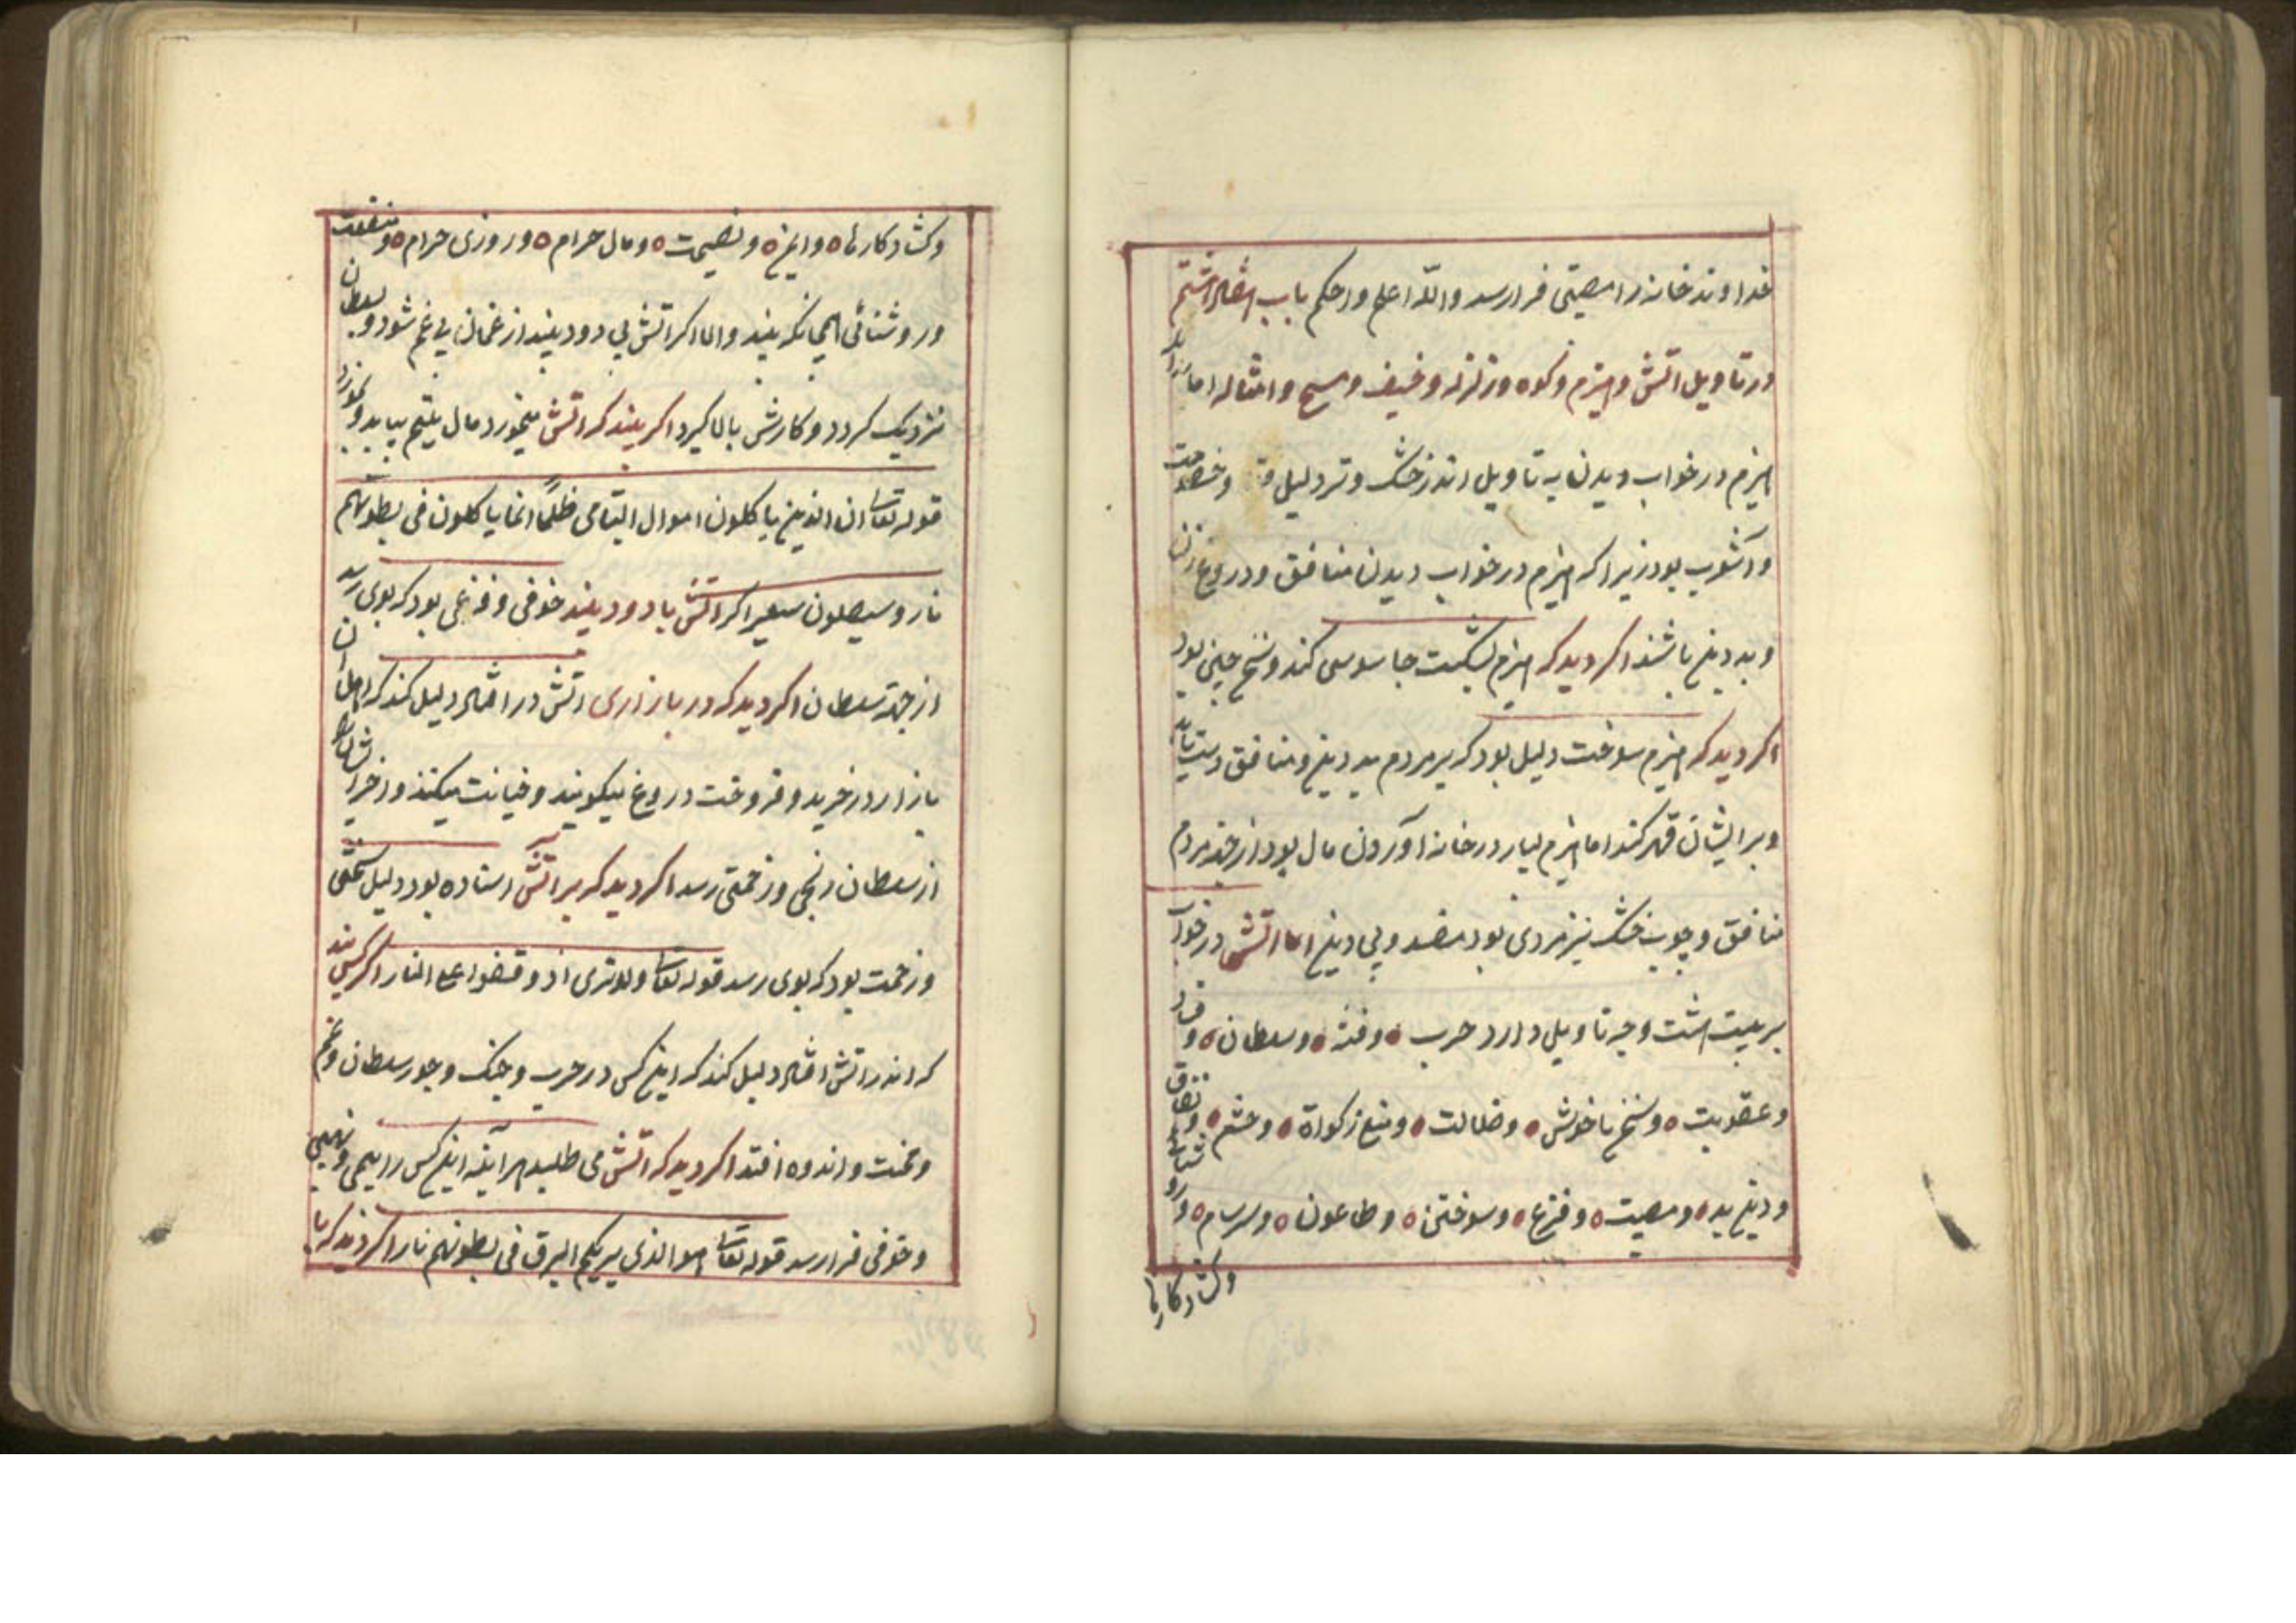 خداوند خانه را مصیبتی فرا رسد والله اعلم واحکم باب
در تاویل اتش وهیزم وکوه وزلزله وخیف ومسح وامثاله اما بدانکه
هیزم در خواب دیدن به تاویل اندر خشک وتر دلیل وخصومت
وآشوب بود زیرا که هیزم در خواب دیدن منافق ودروغ زن
وبد دین باشند اکر دید که هیزم بشکست جاسوسی کند وسخن چینی بود
اکر دید که هیزم سوخت دلیل بود که بر مردم بد دین ومنافق دست یابد
وبر ایشان قهر کند اما هیزم بسیار در خانه آوردن مال بود از مردم
منافق وچوب خشک نیز مردی بود مفسد وبی دین اما اتش در خواب
بر بیست هشت وجه تاویل دارد حرب وفتنه وسلطان وفساد
وعقوبت وسخن ناخوش وضلالت ومنع زکواة وخشم ونفاق
ودین بد ومصیبت وفزع وسوختن وطاعون وسرسام وروشنائی
وکشاد کارها
وکشاد کارها وایمن ونصیحت ومال حرام وروزی حرام ومنفعت
وروشنائی همچنانکه بیند واما اکر اتش بی دود بیند از غمان بی غم شود وبسلطان
نزدیک کردد وکارش بالا کیرد اکر بیند که اتش میخورد مال یتیم بیابد وبخورد
قوله تعالی ان الذین یاکلون اموال الیتامی ظلما انما یاکلون فی بطونهم
نار وسیصلون سعیرا اکر اتش با دود بیند خوفی وفزعی بود که بوی رسد
از جهة سلطان اکر دید که در بازاری اتش در افتاد دلیل کند که اهل آن
بازار در خرید وفروخت دروغ میکویند وخیانت میکنند
از سلطان رنجی وزحمتی رسد اکر دید که بر آتش استاده بود دلیل سختی
وزحمت بود که بوی رسد قوله تعالی ولوتری اذ وقفوا علی النار اکر کسی بیند
که اندر اتش افتاد دلیل کند که این کس در حرب وجنک وجور سلطان وغم
ومحنت واندوه افتد اکر دید که اتش می طلبید هر آینه این کس را بیمی
وخوفی فرا رسد قوله تعالی هو الذی یریکم البرق فی بطونهم نارا اکر دید که با